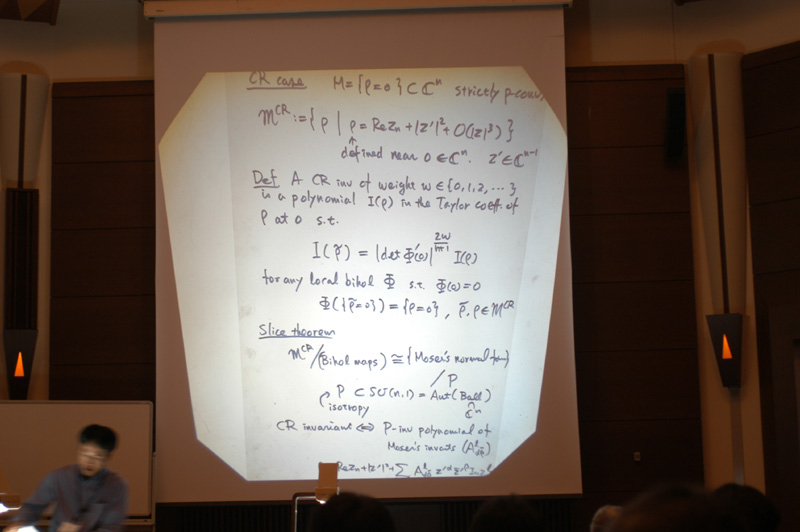 CR case M = {ρ=0} ⊂ ℂⁿ strictly p-conv,
𝓜^CR := { ρ | ρ = Re zₙ + |z'|² + O(|z|³) }
↑ defined near 0 ∈ ℂⁿ. z' ∈ ℂⁿ⁻¹
Def A CR inv of weight w ∈ {0,1,2,⋯}
is a polynomial I(ρ) in the Taylor coeff. of
ρ at 0 s.t.
I(ρ̃) = |det Φ'(0)|^{2w/(n+1)} I(ρ)
for any local bihol Φ s.t. Φ(0) = 0
Φ({ρ̃=0}) = {ρ=0}, ρ̃, ρ ∈ 𝓜^CR
Slice theorem
𝓜^CR/(Bihol maps) ≅ {Moser's normal form}
/P
P ⊂ SU(n,1) = Aut(Ball)
isotropy ∩ ℂⁿ
CR invariant ⇔ P-inv polynomial of
Moser's invts (A^l_{αβ̄})
Re zₙ + |z'|² + Σ A^l_{αβ̄} z'^α z̄'^β